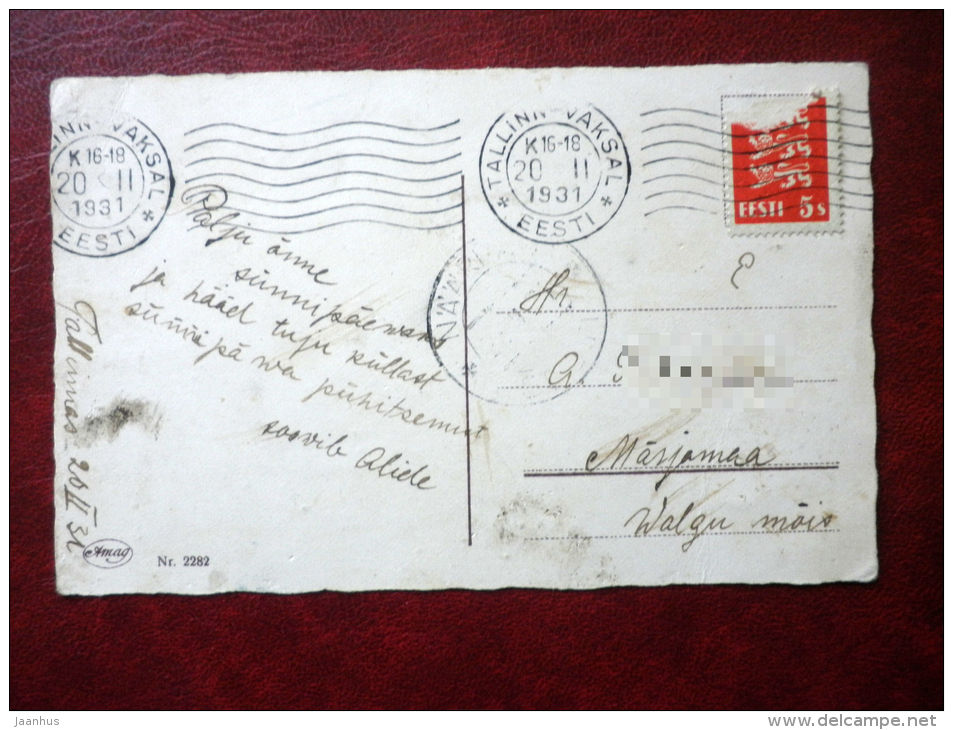 TALLINN-VAKSAL
K 16-18
20 II
1931
EESTI
TALLINN-VAKSAL
K 16-18
20 II
1931
EESTI
EESTI 5 s
Palju õnne
sünnipäewaks
ja hääd tuju küllast
sünnipäwa pühitsemist
soovib Alide
Tallinnas 20 II 31
E
Hr.
A.
Märjamaa
Walgu mõis
Amag
Nr. 2282
Jaanhus
www.delcampe.net